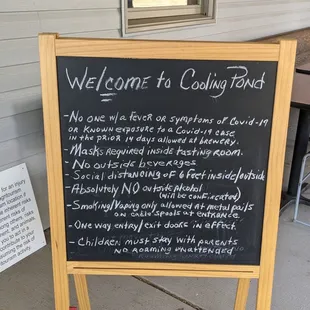 Welcome to Cooling Pond
- No one w/a fever or symptoms of Covid-19
or known exposure to a Covid-19 case
in the prior 14 days allowed at brewery.
- Masks required inside tasting room.
- No outside beverages
- Social distancing of 6 feet inside/outside
- Absolutely NO outside alcohol
(will be confiscated)
- Smoking/Vaping only allowed at metal pails
on cable spools at entrance.
- One way entry/exit doors in effect.
- Children must stay with parents
no roaming unattended